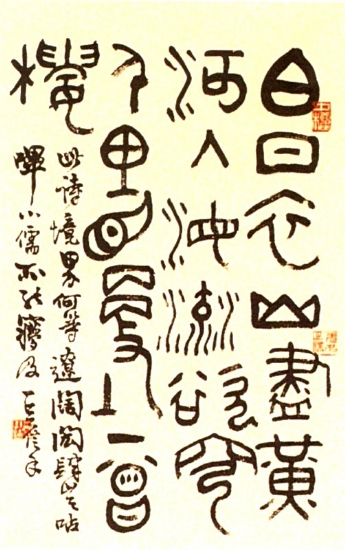 白日依山盡黃
河入海流欲窮
千里目更上一層
樓
此詩境界何等遼闊閎肆豈呫
嗶小儒所能窺及